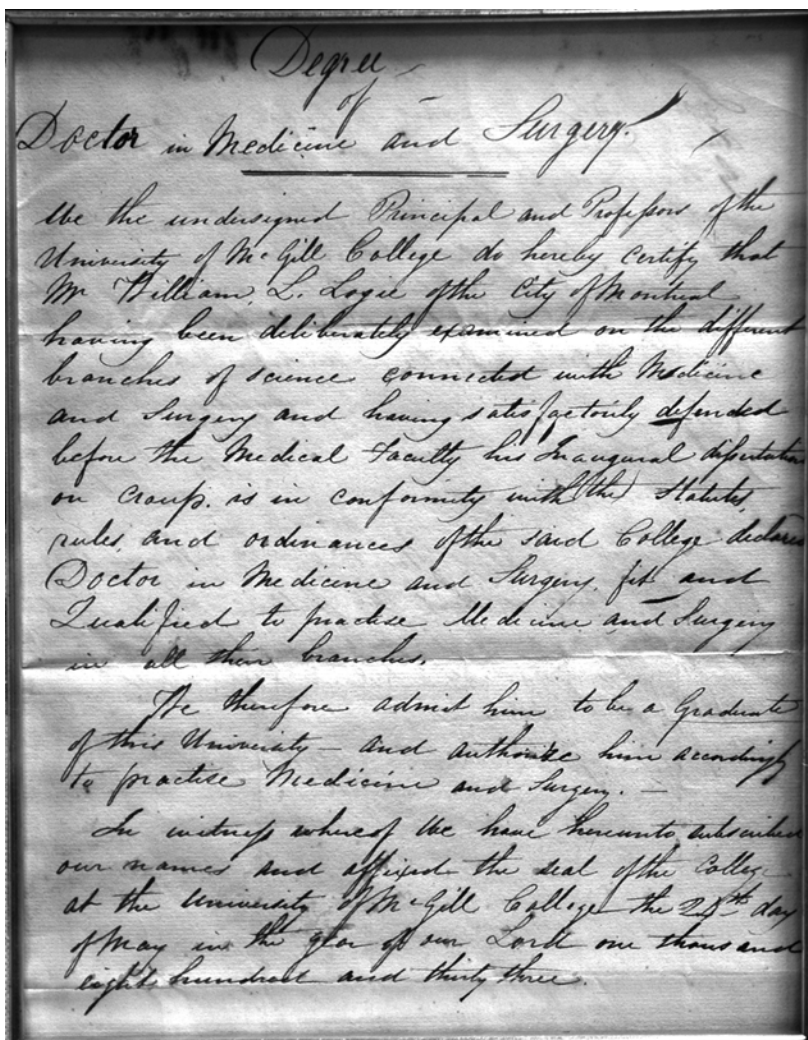 Degree
of
Doctor in Medicine and Surgery.
We the undersigned Principal and Professors of the
University of McGill College do hereby certify that
Mr William. L. Logie of the City of Montreal
having been deliberately examined on the different
branches of science connected with Medicine
and Surgery and having satisfactorily defended
before the Medical Faculty his Inaugural dissertation
on Croup. is in conformity with (the) Statutes,
rules, and ordinances of the said College declared
Doctor in Medicine and Surgery, fit and
Qualified to practise Medicine and Surgery
in all their branches.
We therefore admit him to be a Graduate
of this University – and authorize him accordingly
to practise Medicine and Surgery. –
In witness whereof We have hereunto subscribed
our names and affixed the seal of the College
at the University of McGill College the day
of May in the year of our Lord one thousand
eight hundred and thirty three.